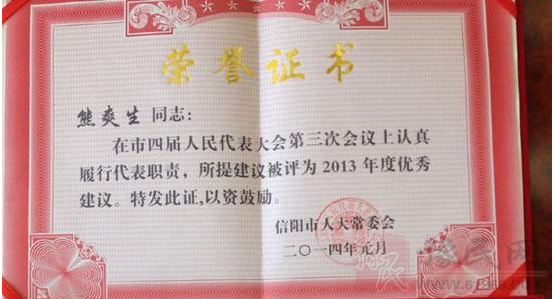 荣誉证书
熊爽生 同志：
在市四届人民代表大会第三次会议上认真
履行代表职责，所提建议被评为2013年度优秀
建议。特发此证，以资鼓励。
信阳市人大常委会
二〇一四年元月